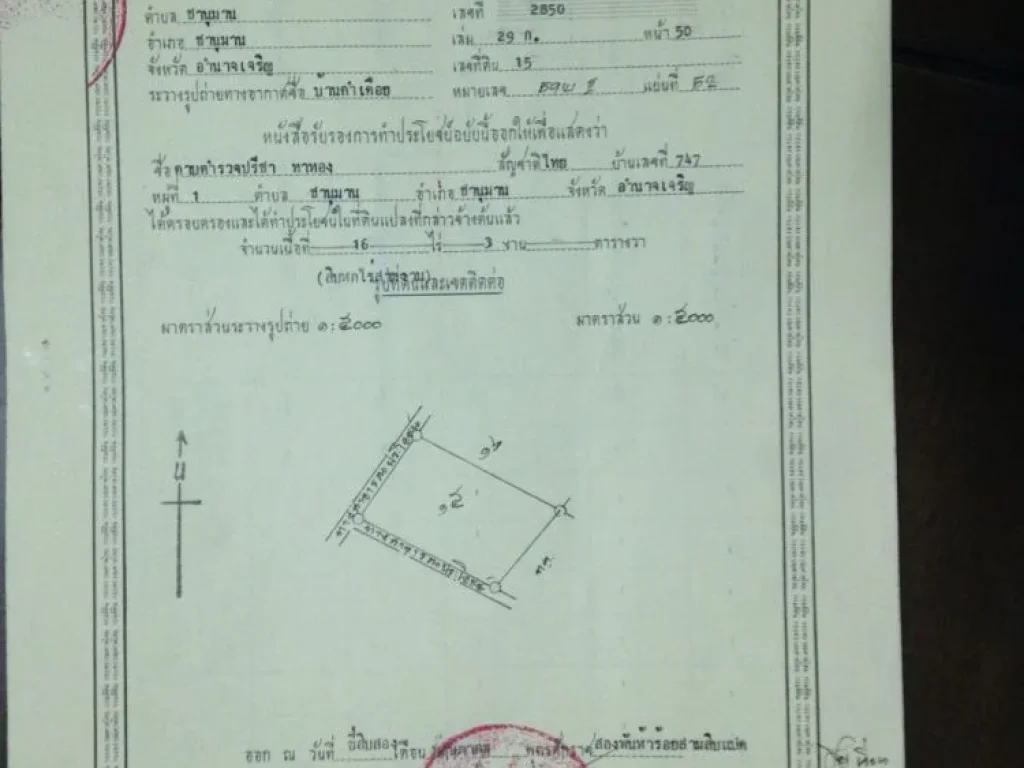 ตำบล ชานุมาน เลขที่ 2850
อำเภอ ชานุมาน เล่ม 29 ก. หน้า 50
จังหวัด อำนาจเจริญ เลขที่ดิน 15
ระวางรูปถ่ายทางอากาศชื่อ บ้านคำเดือย หมายเลข แผ่นที่
หนังสือรับรองการทำประโยชน์ฉบับนี้ออกให้เพื่อแสดงว่า
ชื่อ ดาบตำรวจปรีชา ทาทอง สัญชาติ ไทย บ้านเลขที่ 747
หมู่ที่ 1 ตำบล ชานุมาน อำเภอ ชานุมาน จังหวัด อำนาจเจริญ
ได้ครอบครองและได้ทำประโยชน์ในที่ดินแปลงที่กล่าวข้างต้นแล้ว
จำนวนเนื้อที่ 16 ไร่ 3 งาน ตารางวา
(สิบหกไร่สามงาน)
รูปที่ดินและเขตติดต่อ
มาตราส่วนระวางรูปถ่าย ๑:๕๐๐๐ มาตราส่วน ๑:๕๐๐๐
น
๑๖
๑๕
ทางสาธารณประโยชน์
ทางสาธารณประโยชน์
ออก ณ วันที่ ยี่สิบสอง เดือน พุทธศักราช สองพันห้าร้อยสามสิบแปด